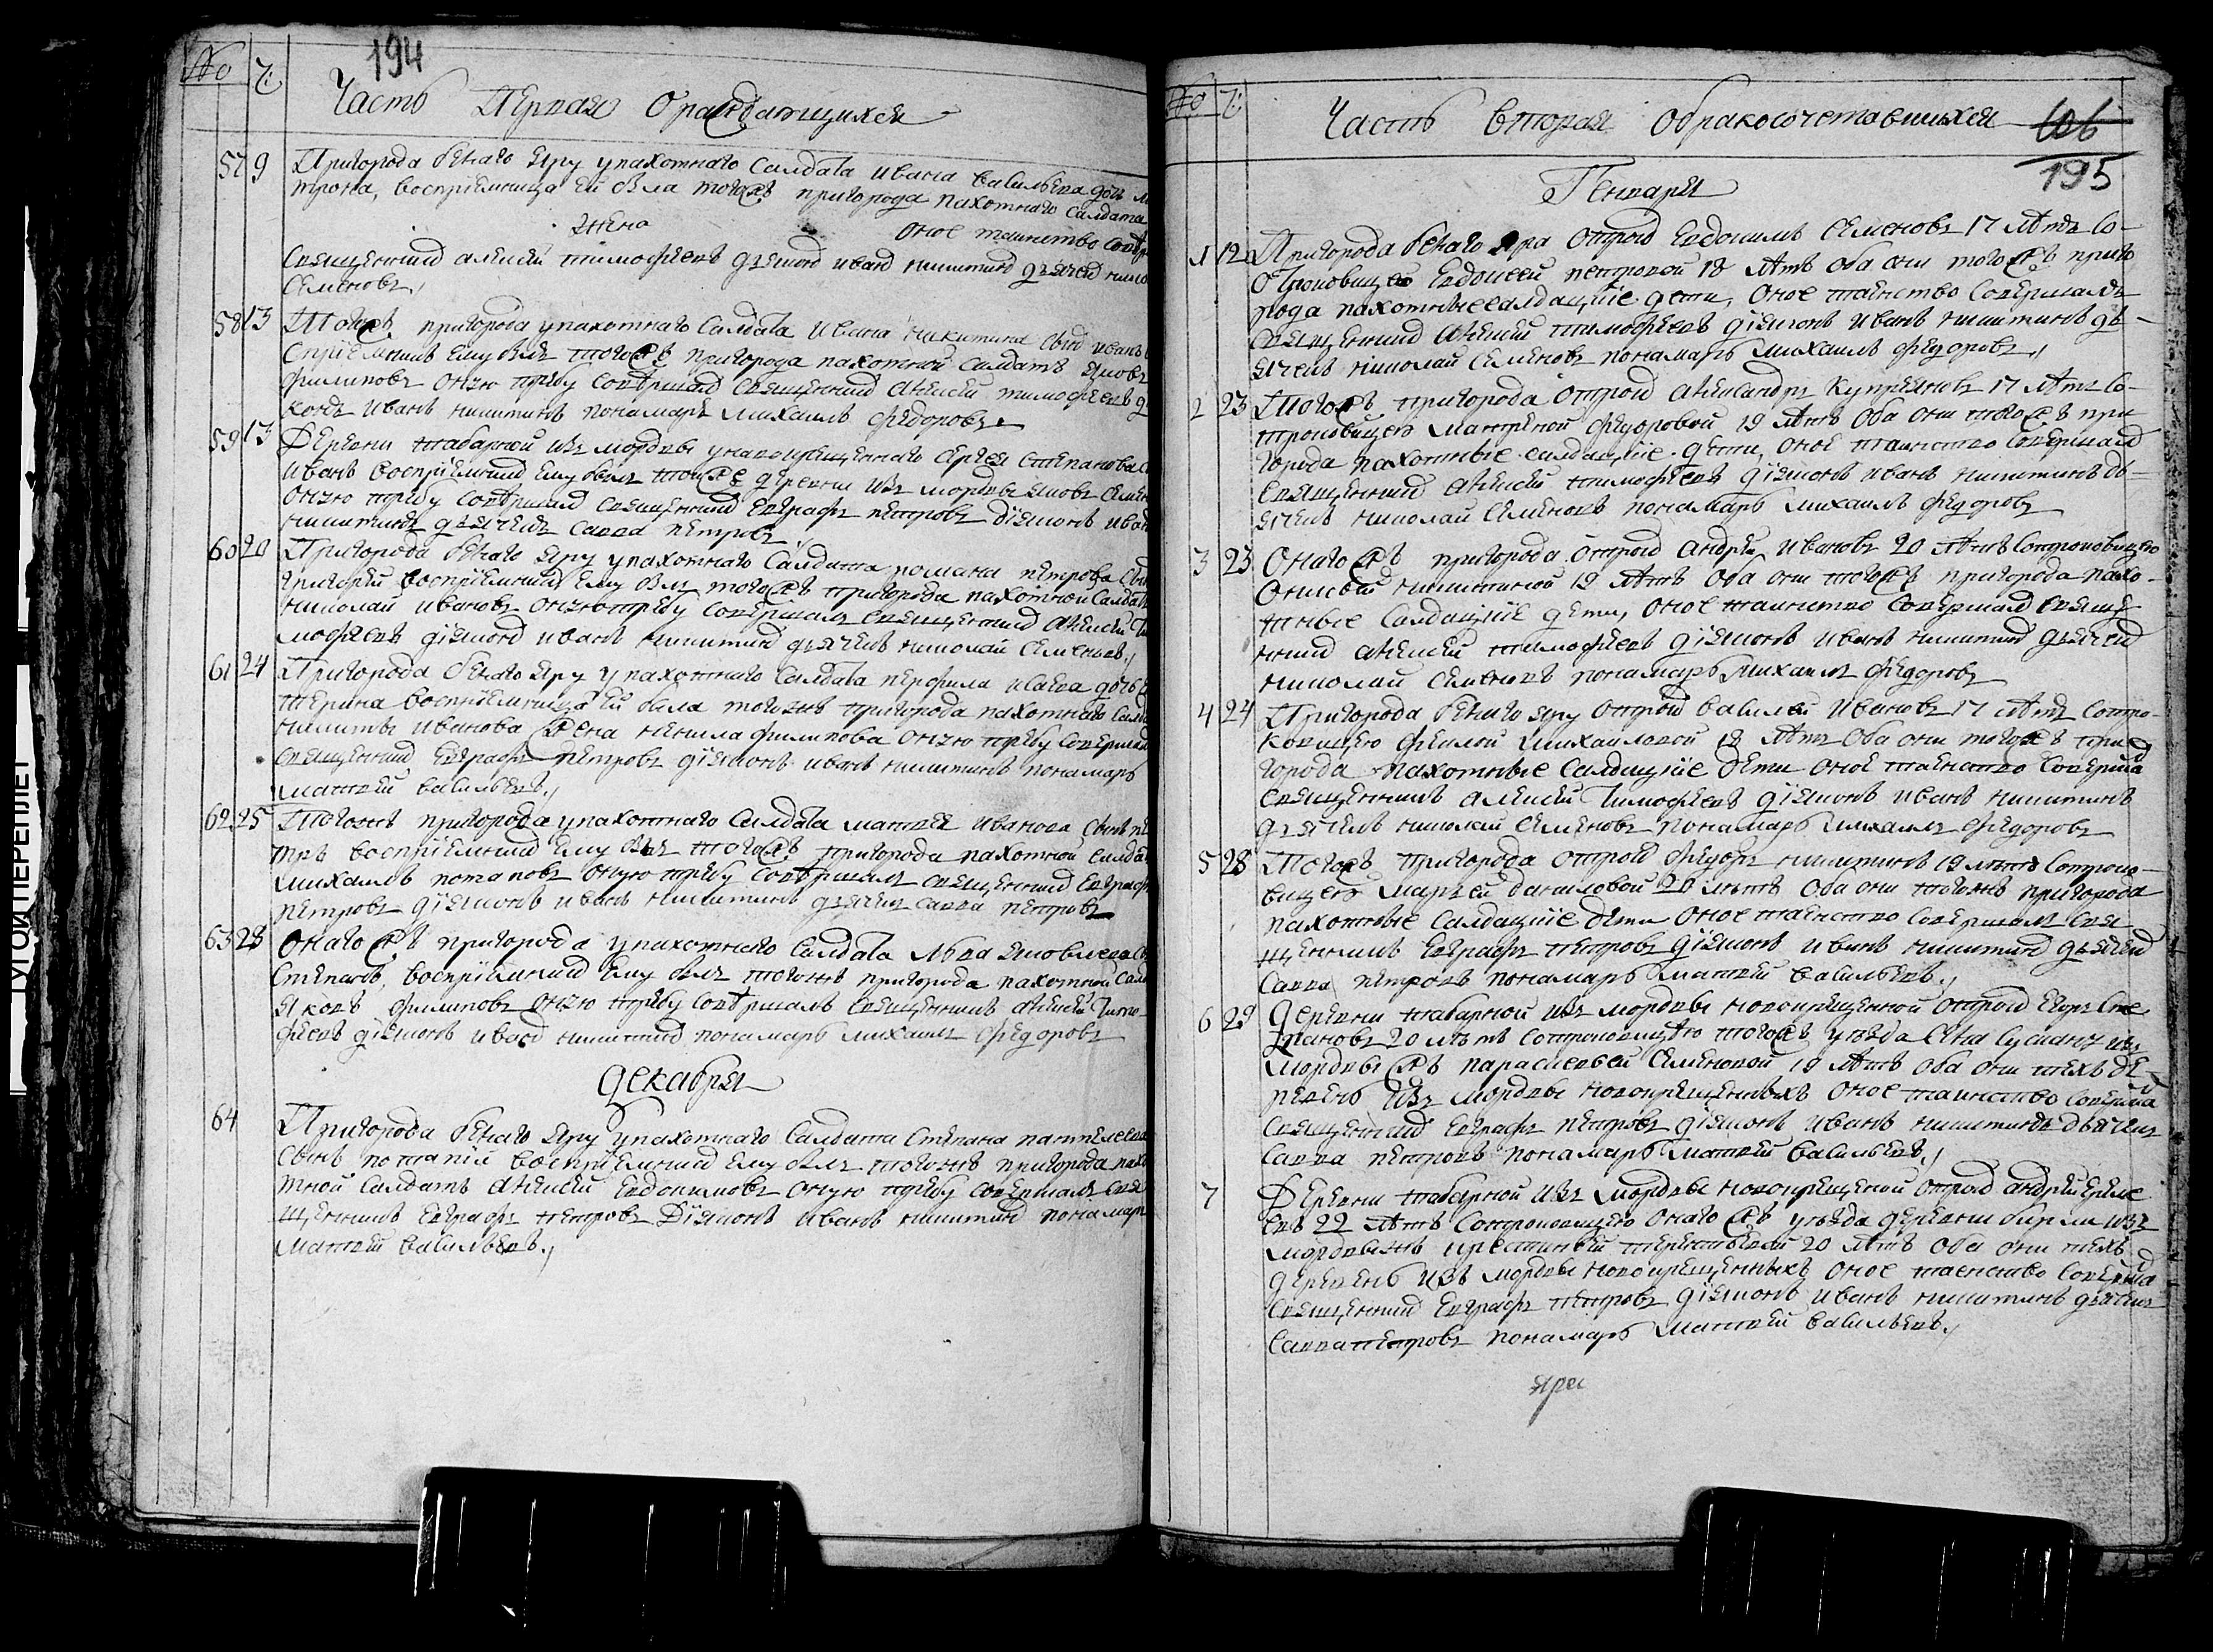 194
№ Ч:
Часть Первая О раждающихся
57 9 Пригорода Белаго Яру у пахотнаго Салдата Ивана Васильева дочь
трона, восприемница ей была тогожъ пригорода пахотнаго Салдата
жена оное таинство
Священникъ алексей тимофеевъ дьяконъ иванъ никитинъ дьячекъ
Семеновъ
58 13 Тогожъ пригорода у пахотнаго Салдата Ивана никитина сынъ иванъ
сприемникъ ему былъ тогожъ пригорода пахотной Салдатъ яковъ
филиповъ оную требу совершилъ Священникъ Алексей тимофеевъ
конъ Иванъ никитинъ понамарь михаилъ федоровъ
59 13 Деревни табарной изъ мордвы у новокрещеннаго сергея степанова
иванъ восприемникъ ему былъ тоижъ деревни изъ мордвы яковъ
оную требу совершилъ священникъ Евграфъ петровъ дьяконъ иванъ
никитинъ дьячекъ савва петровъ
60 20 Пригорода белаго Яру у пахотнаго Салдата романа петрова
григорей восприемникъ ему былъ тогожъ пригорода пахотной
николай ивановъ оную требу совершилъ священникъ Алексей
мофеевъ дьяконъ иванъ никитинъ дьячекъ николай Семеновъ
61 24 Пригорода белаго яру у пахотнаго Салдата перфила исаева дочь
терина восприемница ей была тогожъ пригорода пахотнаго
никиты иванова жена ненила филипова оную требу совершилъ
священникъ Евграфъ петровъ дьяконъ иванъ никитинъ понамарь
матвей васильевъ
62 25 Тогожъ пригорода у пахотнаго Салдата матвея иванова сынъ
тръ восприемникъ ему былъ тогожъ пригорода пахотной
михаилъ потаповъ оную требу совершилъ священникъ
петровъ дьяконъ иванъ никитинъ дьячекъ савва петровъ
63 28 Онагожъ пригорода у пахотнаго Салдата Льва яковлева
степанъ, восприемникъ ему былъ тогожъ пригорода пахотной
яковъ филиповъ оную требу совершилъ священникъ алексей
феевъ дьяконъ иванъ никитинъ понамарь михаилъ федоровъ
Декабря
64 Пригорода белаго Яру у пахотнаго Салдата степана
сынъ потапий восприемникъ ему былъ тогожъ пригорода
тной салдатъ Алексей Евдокимовъ оную требу совершилъ
щенникъ Евграфъ петровъ Дьяконъ иванъ никитинъ понамарь
матвей васильевъ
№ Ч:
Часть вторая обракосочетавшихся 106
195
Генваря
1 12 Пригорода белаго Яра отрокъ Евдокимъ Семеновъ 17 летъ со
отроковицею Евдокеей петровой 18 летъ оба они тогожъ приго
рода пахотные салдацкие дети, оное таинство совершилъ
священникъ Алексей тимофеевъ дьяконъ иванъ никитинъ дь
ячекъ николай Семеновъ понамарь михаилъ федоровъ
2 23 Тогожъ пригорода отрокъ Александръ Купреяновъ 17 летъ со
троковицею матреной федоровой 19 летъ оба они тогожъ при
города пахотные салдацкие дети, оное таинство совершилъ
священникъ Алексей тимофеевъ дьяконъ иванъ никитинъ дь
ячекъ николай Семеновъ понамарь михаилъ федоровъ
3 23 Онагожъ пригорода отрокъ андрей ивановъ 20 летъ сотроковицею
никитиной 19 летъ оба они тогожъ пригорода пахо
тные салдацкие дети, оное таинство совершилъ священ
никъ алексей тимофеевъ дьяконъ иванъ никитинъ дьячекъ
николай семеновъ понамарь михаилъ федоровъ
4 24 Пригорода белаго яру отрокъ василей ивановъ 17 летъ сотро
ковицею феклой михаиловой 18 летъ оба они тогожъ при
города пахотные салдацкие дети оное таинство соверши
священникъ алексей тимофеевъ дьяконъ иванъ никитинъ
дьячекъ николай семеновъ понамарь михаилъ федоровъ
5 28 Тогожъ пригорода отрокъ федоръ никитинъ 19 летъ сотроко
вицею марьей даниловой 20 летъ оба они тогожъ пригорода
пахотные салдацкие дети оное таинство совершилъ свя
щенникъ Евграфъ петровъ дьяконъ иванъ никитинъ дьячекъ
савва петровъ понамарь матвей васильевъ
6 29 Деревни табарной изъ мордвы новокрещенной отрокъ Егоръ сте
пановъ 20 летъ сотроковицею тогожъ уезда села изъ
мордвы жъ парасковьей семеновой 19 летъ оба они техъ де
ревень изъ мордвы новокрещенныхъ оное таинство соверши
священникъ Евграфъ петровъ дьяконъ иванъ никитинъ дьячекъ
савва петровъ понамарь матвей васильевъ
7 Деревни табарной изъ мордвы новокрещеной отрокъ андрей
евъ 22 летъ сотроковицею онагожъ уезда деревни бирли изъ
мордвыжъ терентьевой 20 летъ оба они техъ
деревень изъ мордвы новокрещенныхъ оное таинство соверши
священникъ Евграфъ петровъ дьяконъ иванъ никитинъ дьячекъ
савва петровъ понамарь матвей васильевъ
ТУГОЙ ПЕРЕПЛЕТ